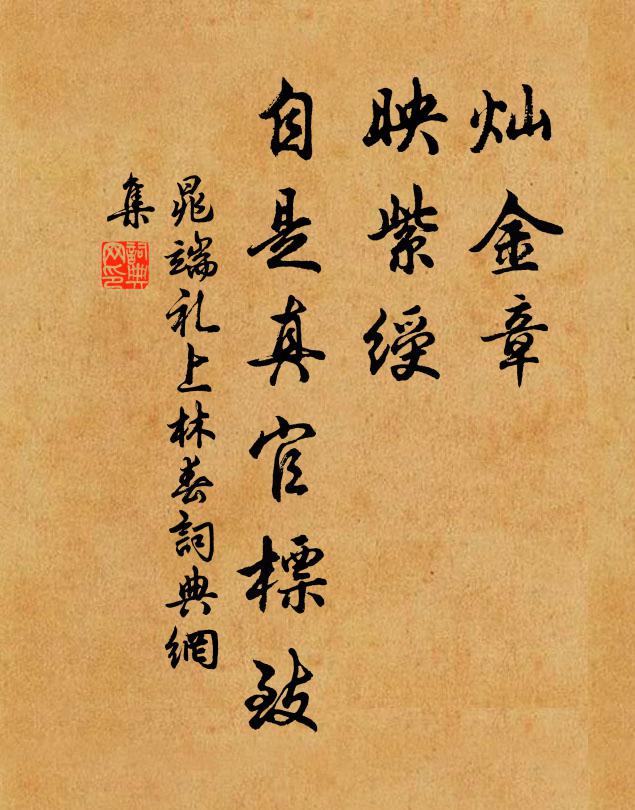 灿金章
映紫绶
自是真官標致
晁端礼上林春詞典網
集
詞典网印